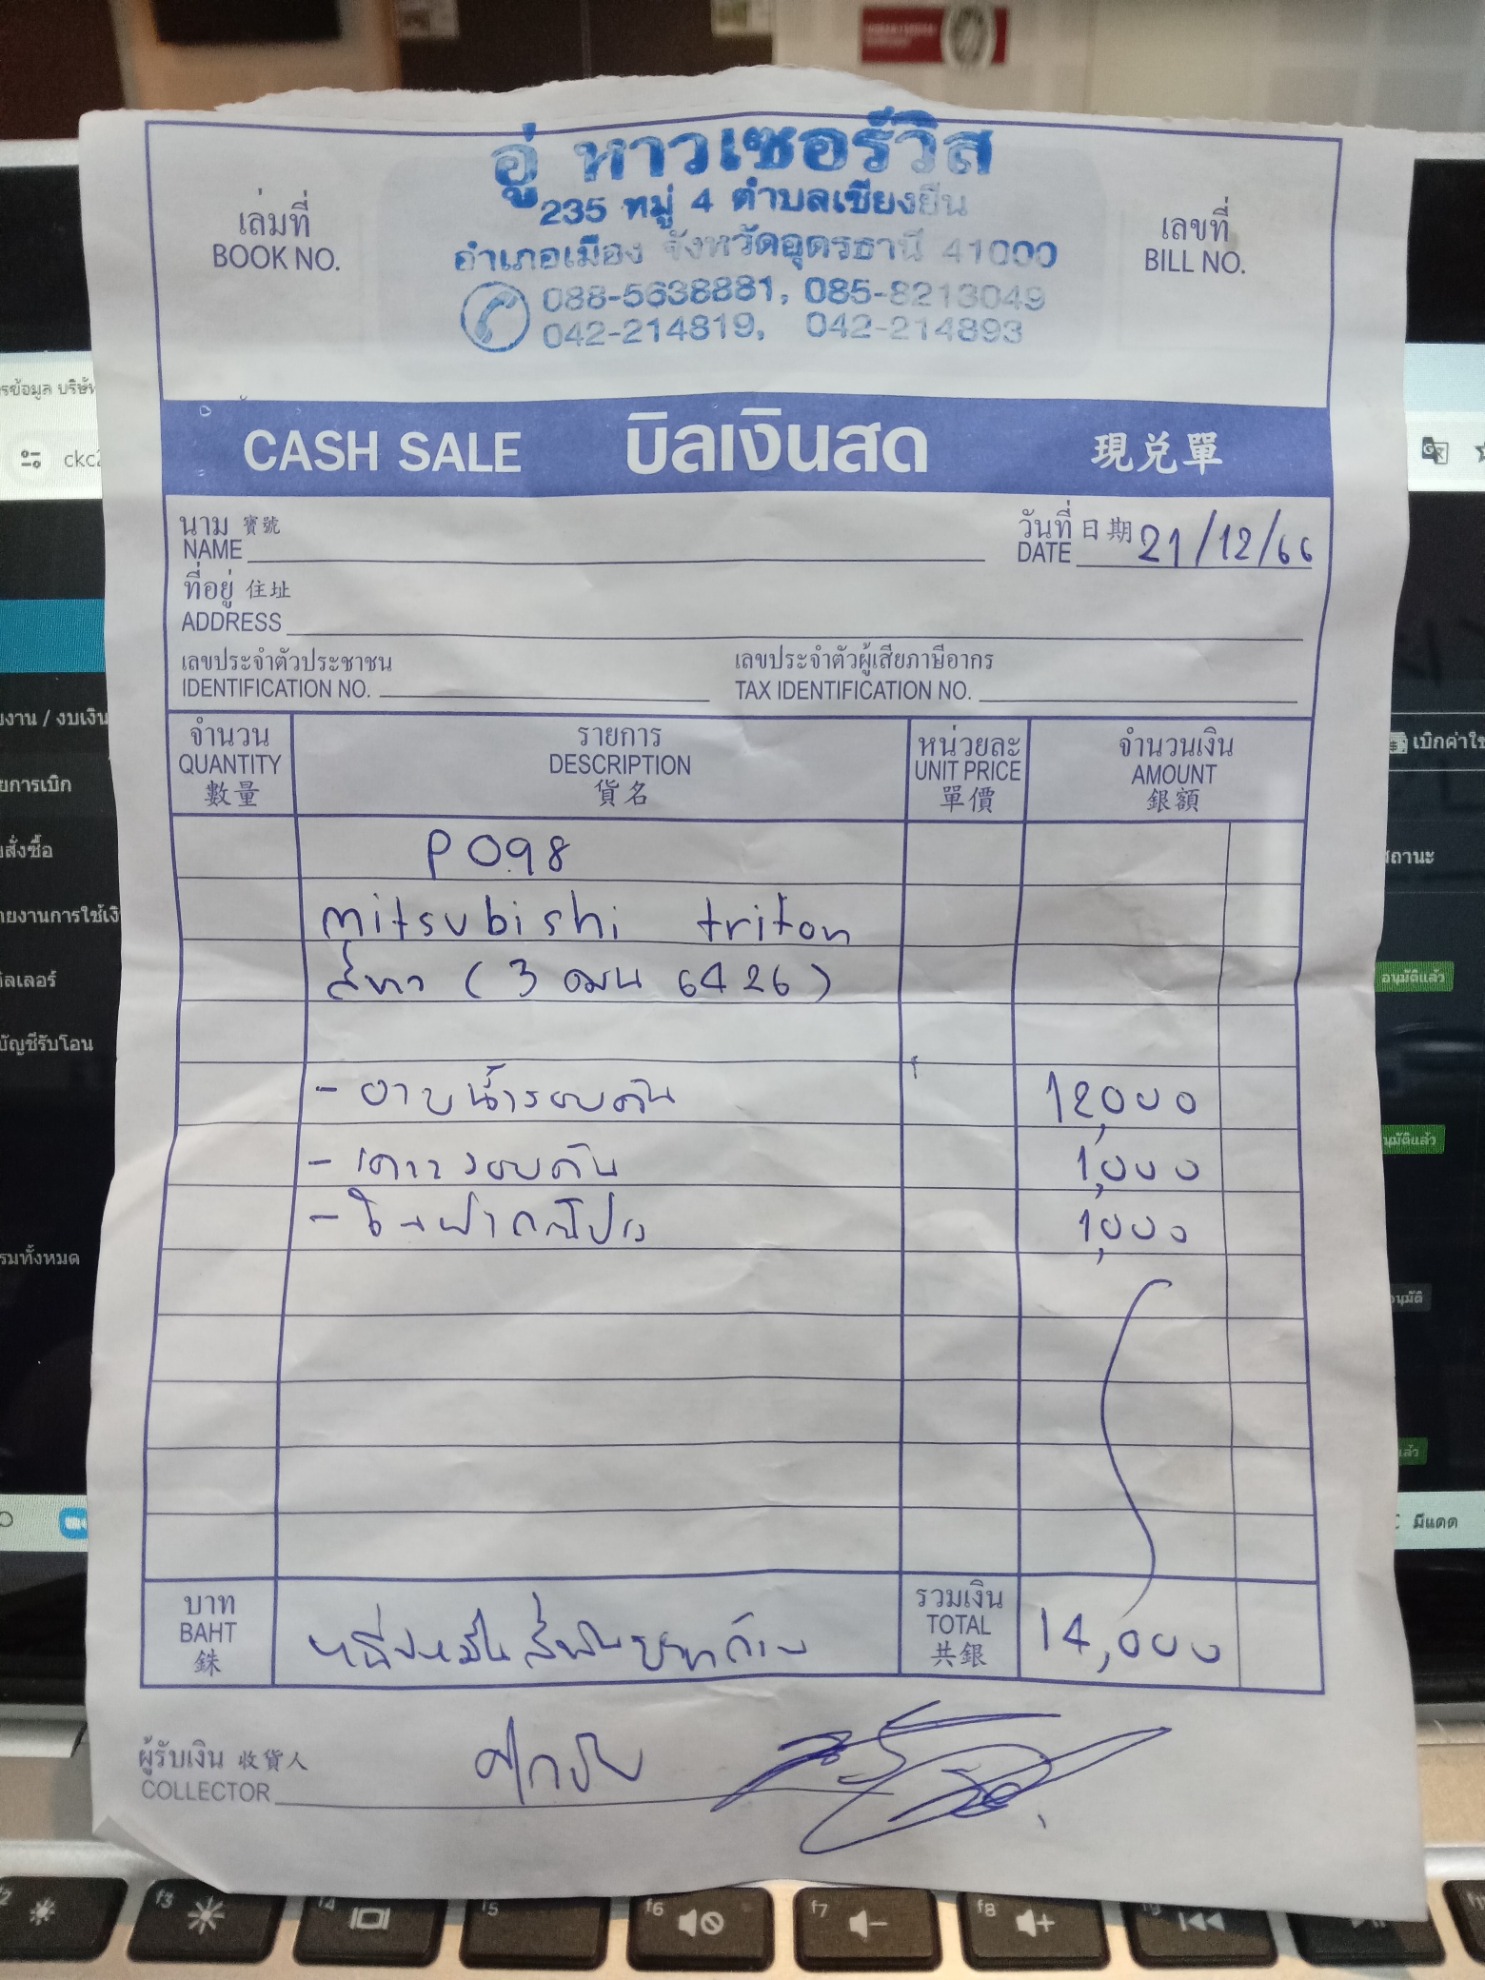 อู่ หาวเซอร์วิส
235 หมู่ 4 ตำบลเชียงยืน
อำเภอเมือง จังหวัดอุดรธานี 41000
088-5638881, 085-8213049
042-214819, 042-214893
เล่มที่
BOOK NO.
เลขที่
BILL NO.
CASH SALE บิลเงินสด 現兌單
นาม 寶號
NAME
วันที่ 日期
DATE 21/12/66
ที่อยู่ 住址
ADDRESS
เลขประจำตัวประชาชน
IDENTIFICATION NO.
เลขประจำตัวผู้เสียภาษีอากร
TAX IDENTIFICATION NO.
จำนวน
QUANTITY
數量
รายการ
DESCRIPTION
貨名
หน่วยละ
UNIT PRICE
單價
จำนวนเงิน
AMOUNT
銀額
P098
mitsubishi triton
สีขาว (3 ฒน 6426)
- อาบน้ำรอบคัน 12,000
- เคาะรอบคัน 1,000
1,000
บาท
BAHT
銖
หนึ่งหมื่นสี่พันบาทถ้วน
รวมเงิน
TOTAL
共銀
14,000
ผู้รับเงิน 收貨人
COLLECTOR
รข้อมูล บริษัท
ckc2
งาน / งบเงิน
ยการเบิก
สั่งซื้อ
ายงานการใช้เงิ
บัญชีรับโอน
รมทั้งหมด
เบิกค่าใช้
สถานะ
อนุมัติแล้ว
นุมัติแล้ว
อนุมัติ
แล้ว
มีแดด
f2
f3
f4
f5
f6
f7
f8